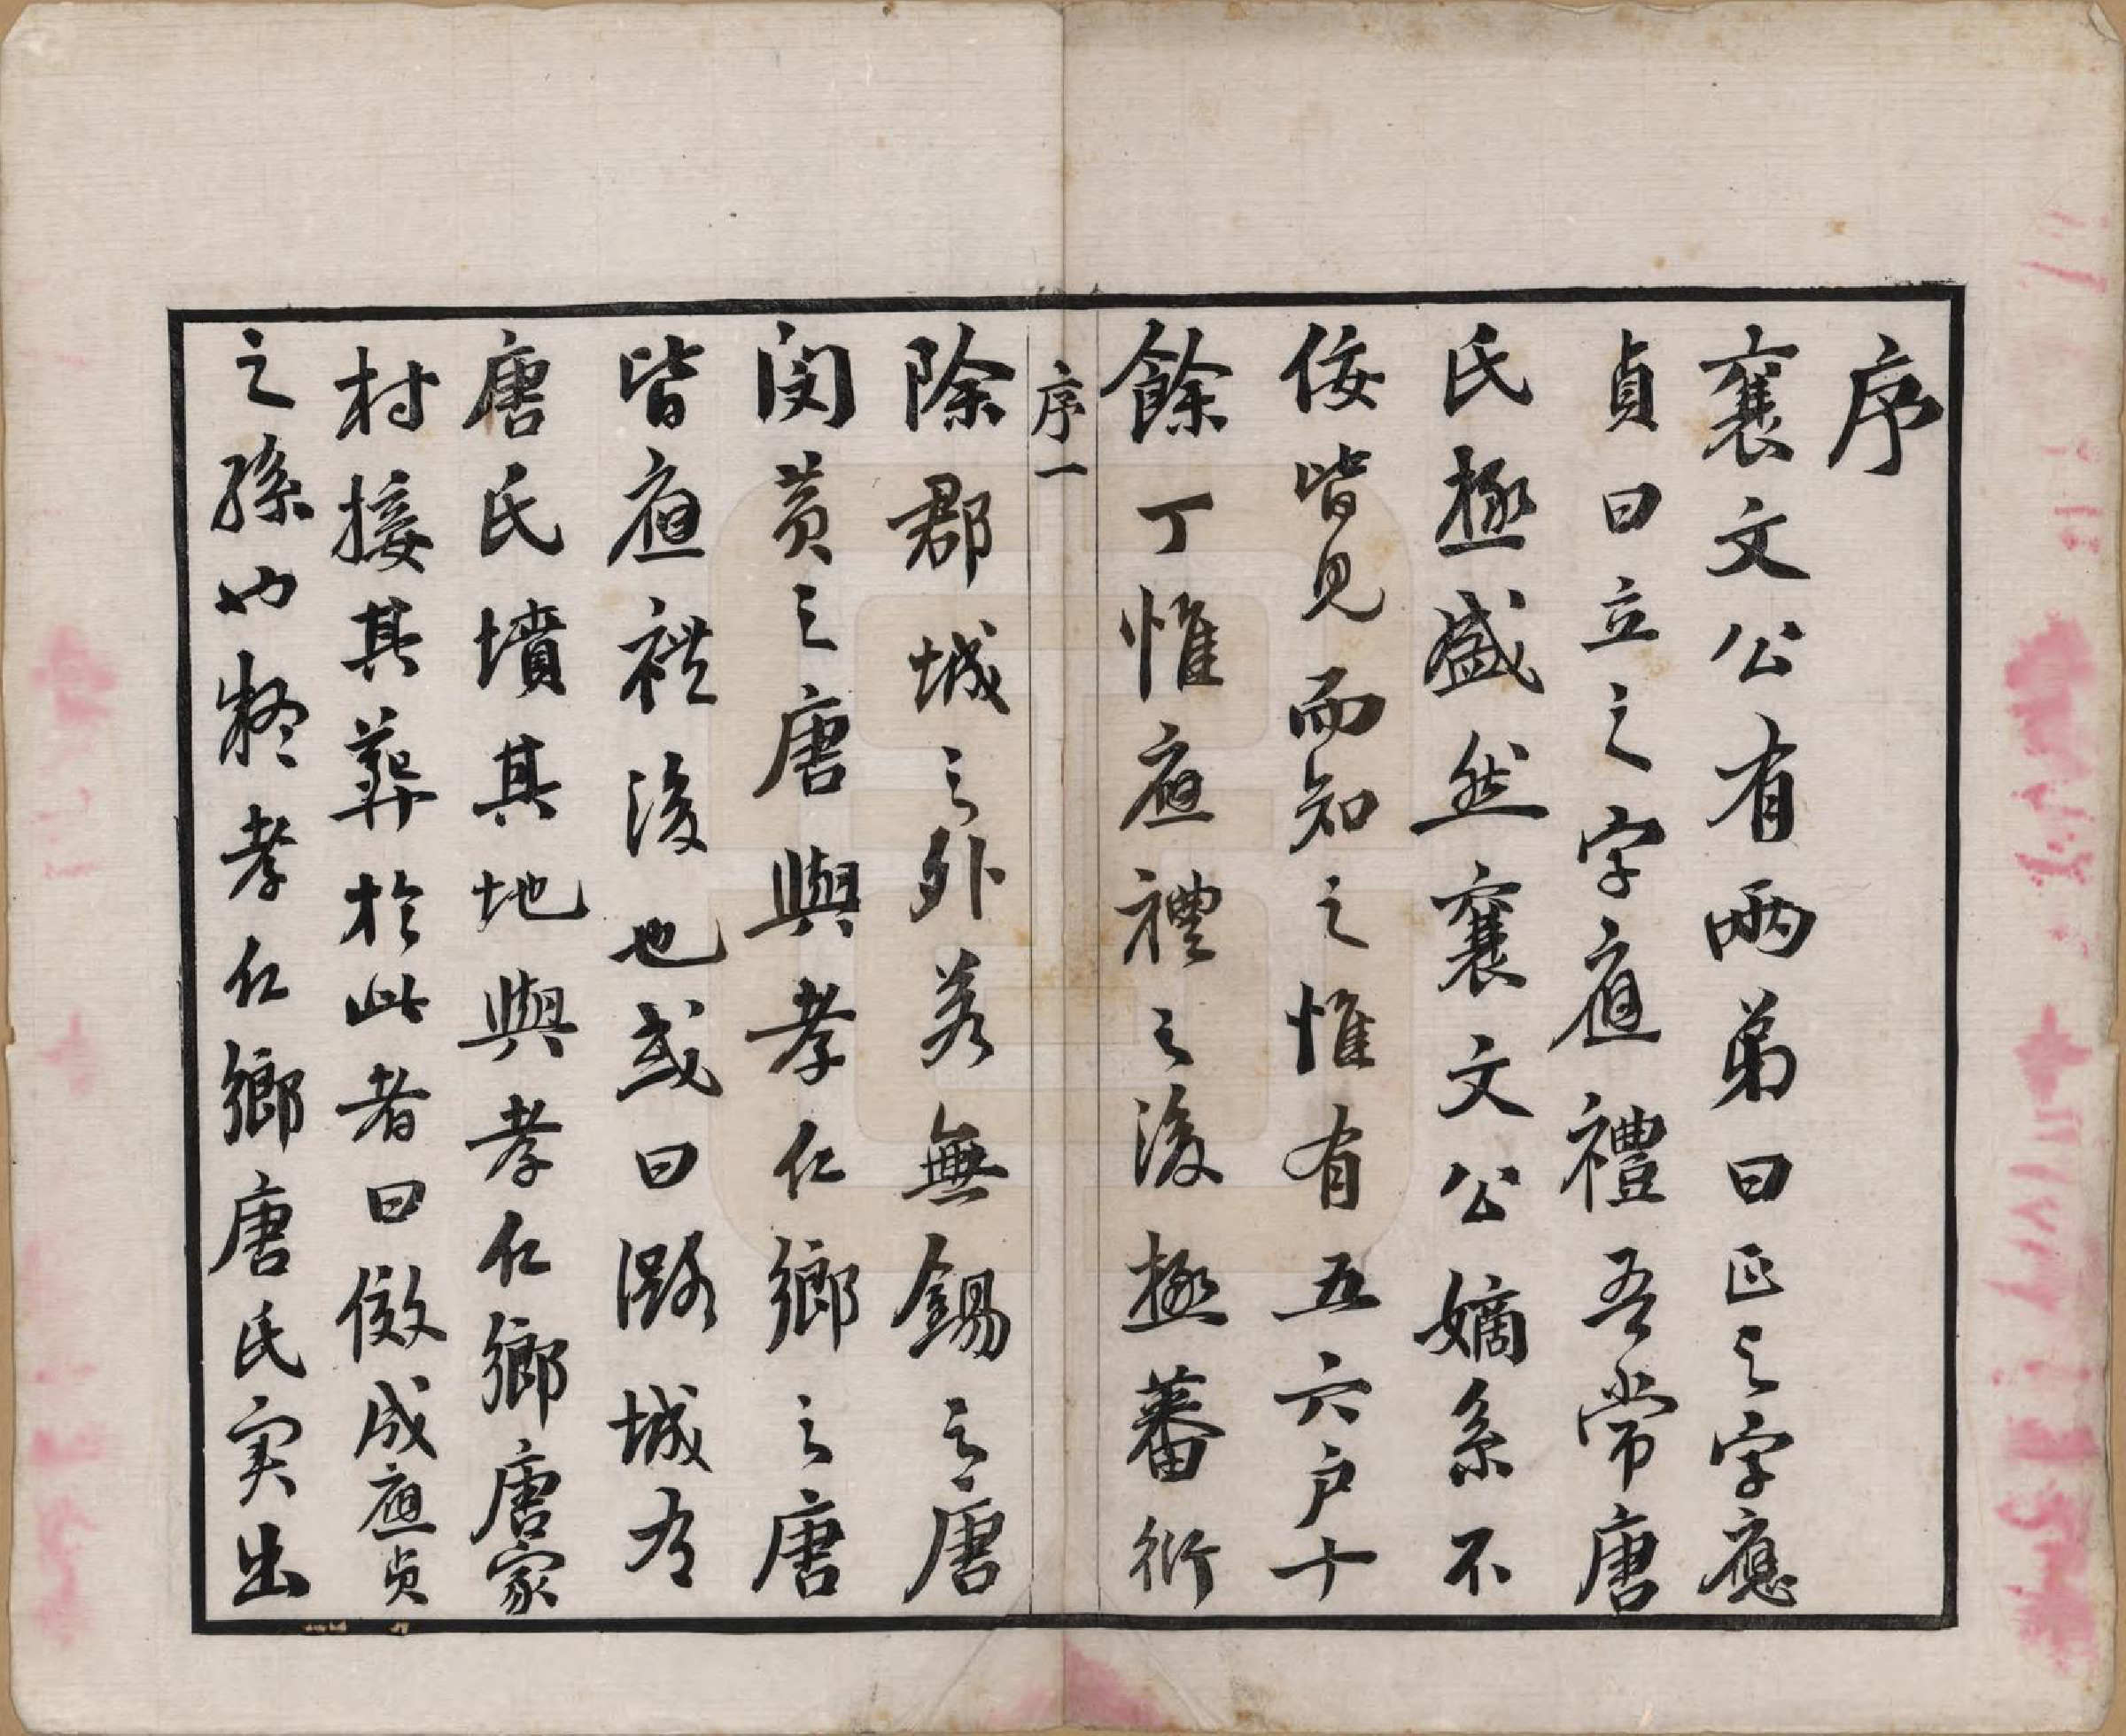 序
襄文公有兩弟曰正之字應
貞曰立之字應禮吾常唐
氏極盛然襄文公嫡系不
佞皆見而知之惟有五六戶十
餘丁惟應禮之後極蕃衍
序一
除郡城之外若無錫之唐
閔黃之唐與孝仁鄉之唐
皆應禮後也或曰潞城有
唐氏墳其地與孝仁鄉唐家
村接其葬於此者曰成應貞
之孫也疑孝仁鄉唐氏实出